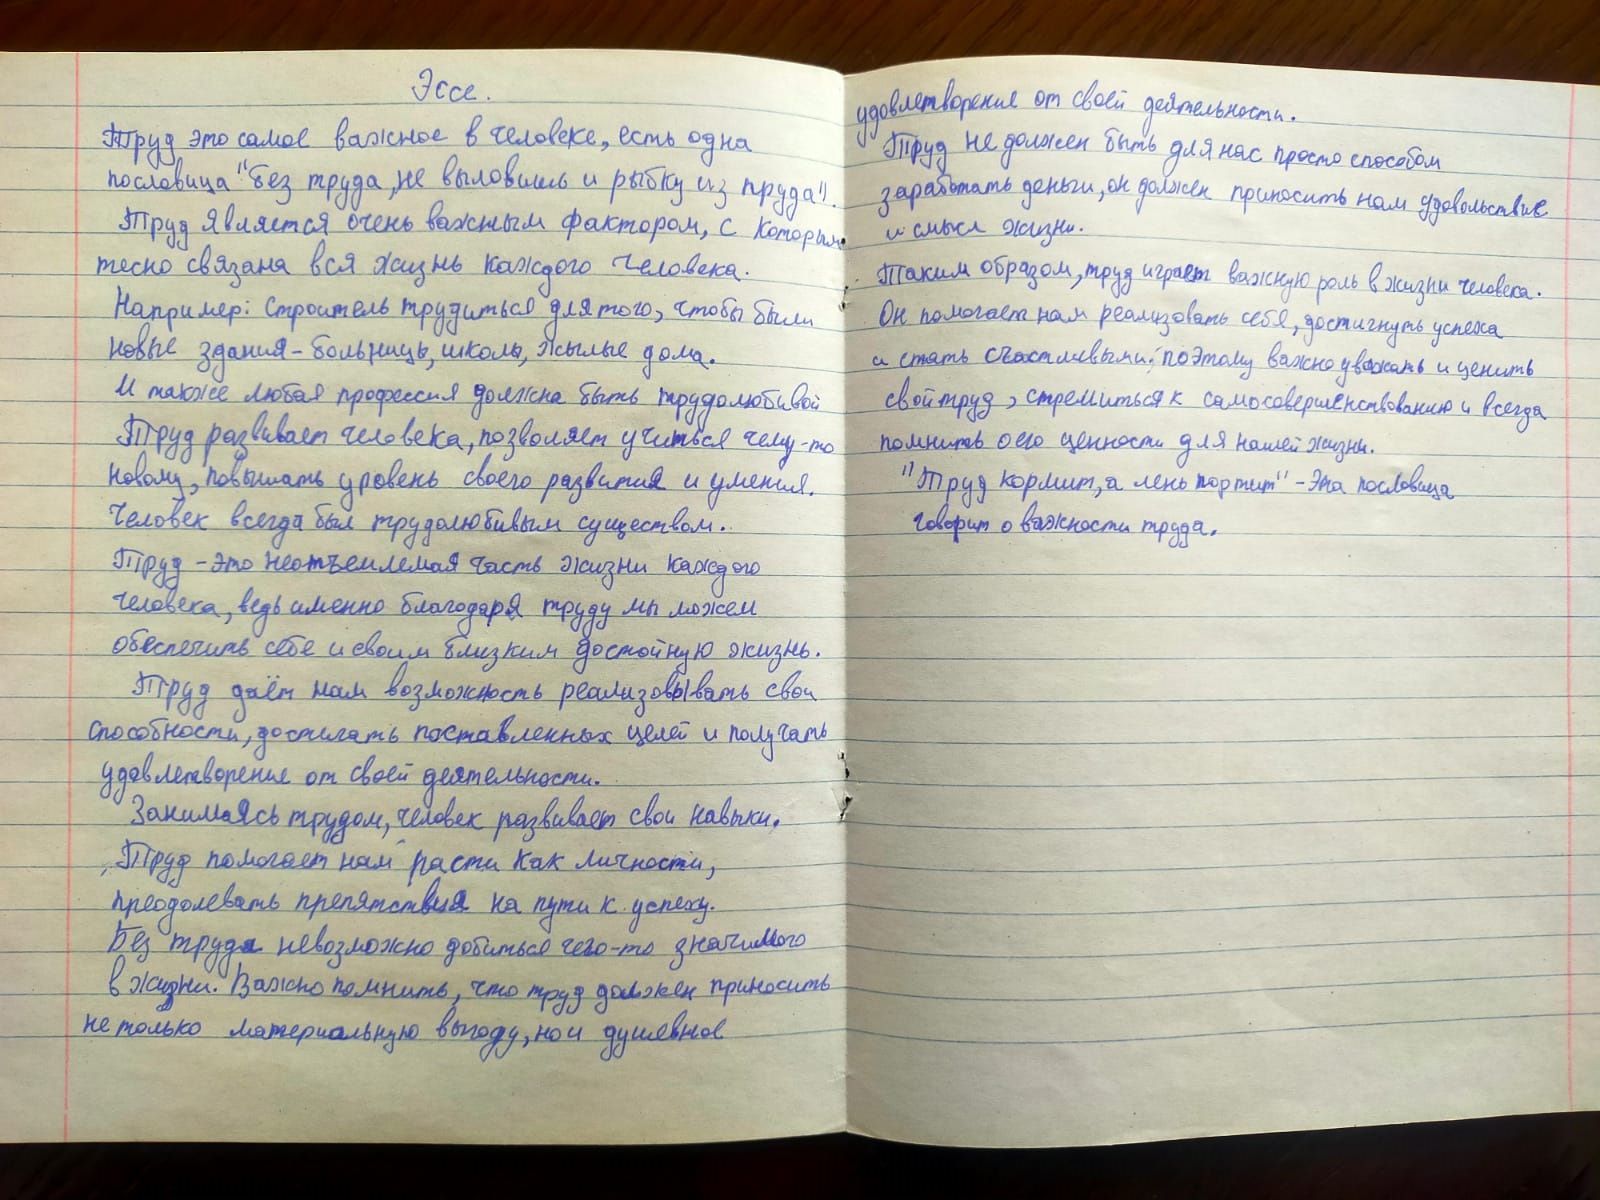 Эссе.
Труд это самое важное в человеке, есть одна
пословица "Без труда, не выловишь и рыбку из пруда".
Труд является очень важным фактором, с которым
тесно связана вся жизнь каждого человека.
Например: строитель трудиться для того, чтобы были
новые здания - больницы, школы, жылые дома.
И также любая профессия должна быть трудолюбивой
Труд развивает человека, позволяет учиться чему-то
новому, повышать уровень своего развития и умения.
Человек всегда был трудолюбивым существом.
Труд - это неотъемлемая часть жизни каждого
человека, ведь именно благодаря труду мы можем
обеспечить себе и своим близким достойную жизнь.
Труд даёт нам возможность реализовывать свои
способности, достигать поставленных целей и получать
удовлетворение от своей деятельности.
Занимаясь трудом, человек развивает свои навыки.
Труд помогает нам расти как личности,
преодолевать препятствия на пути к успеху.
Без труда невозможно добиться чего-то значимого
в жизни. Важно помнить, что труд должен приносить
не только материальную выгоду, но и душевное
удовлетворение от своей деятельности.
Труд не должен быть для нас просто способом
заработать деньги, он должен приносить нам удовольствие
и смысл жизни.
Таким образом, труд играет важную роль в жизни человека.
Он помогает нам реализовать себя, достигнуть успеха
и стать счастливыми, поэтому важно уважать и ценить
свой труд, стремиться к самосовершенствованию и всегда
помнить о его ценности для нашей жизни.
"Труд кормит, а лень портит" - Эта пословица
говорит о важности труда.